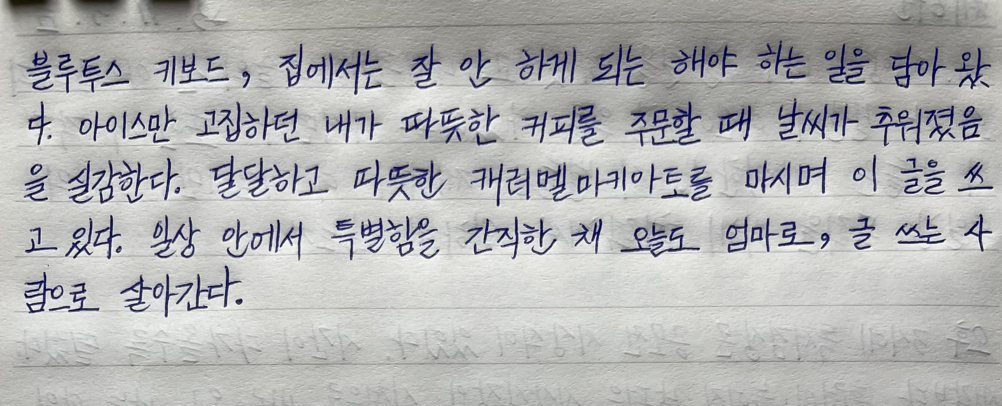 블루투스 키보드, 집에서는 잘 안 하게 되는 해야 하는 일을 담아 왔
다. 아이스만 고집하던 내가 따뜻한 커피를 주문할 때 날씨가 추워졌음
을 실감한다. 달달하고 따뜻한 캐러멜마키아토를 마시며 이 글을 쓰
고 있다. 일상 안에서 특별함을 간직한 채 오늘도 엄마로, 글 쓰는 사
람으로 살아간다.